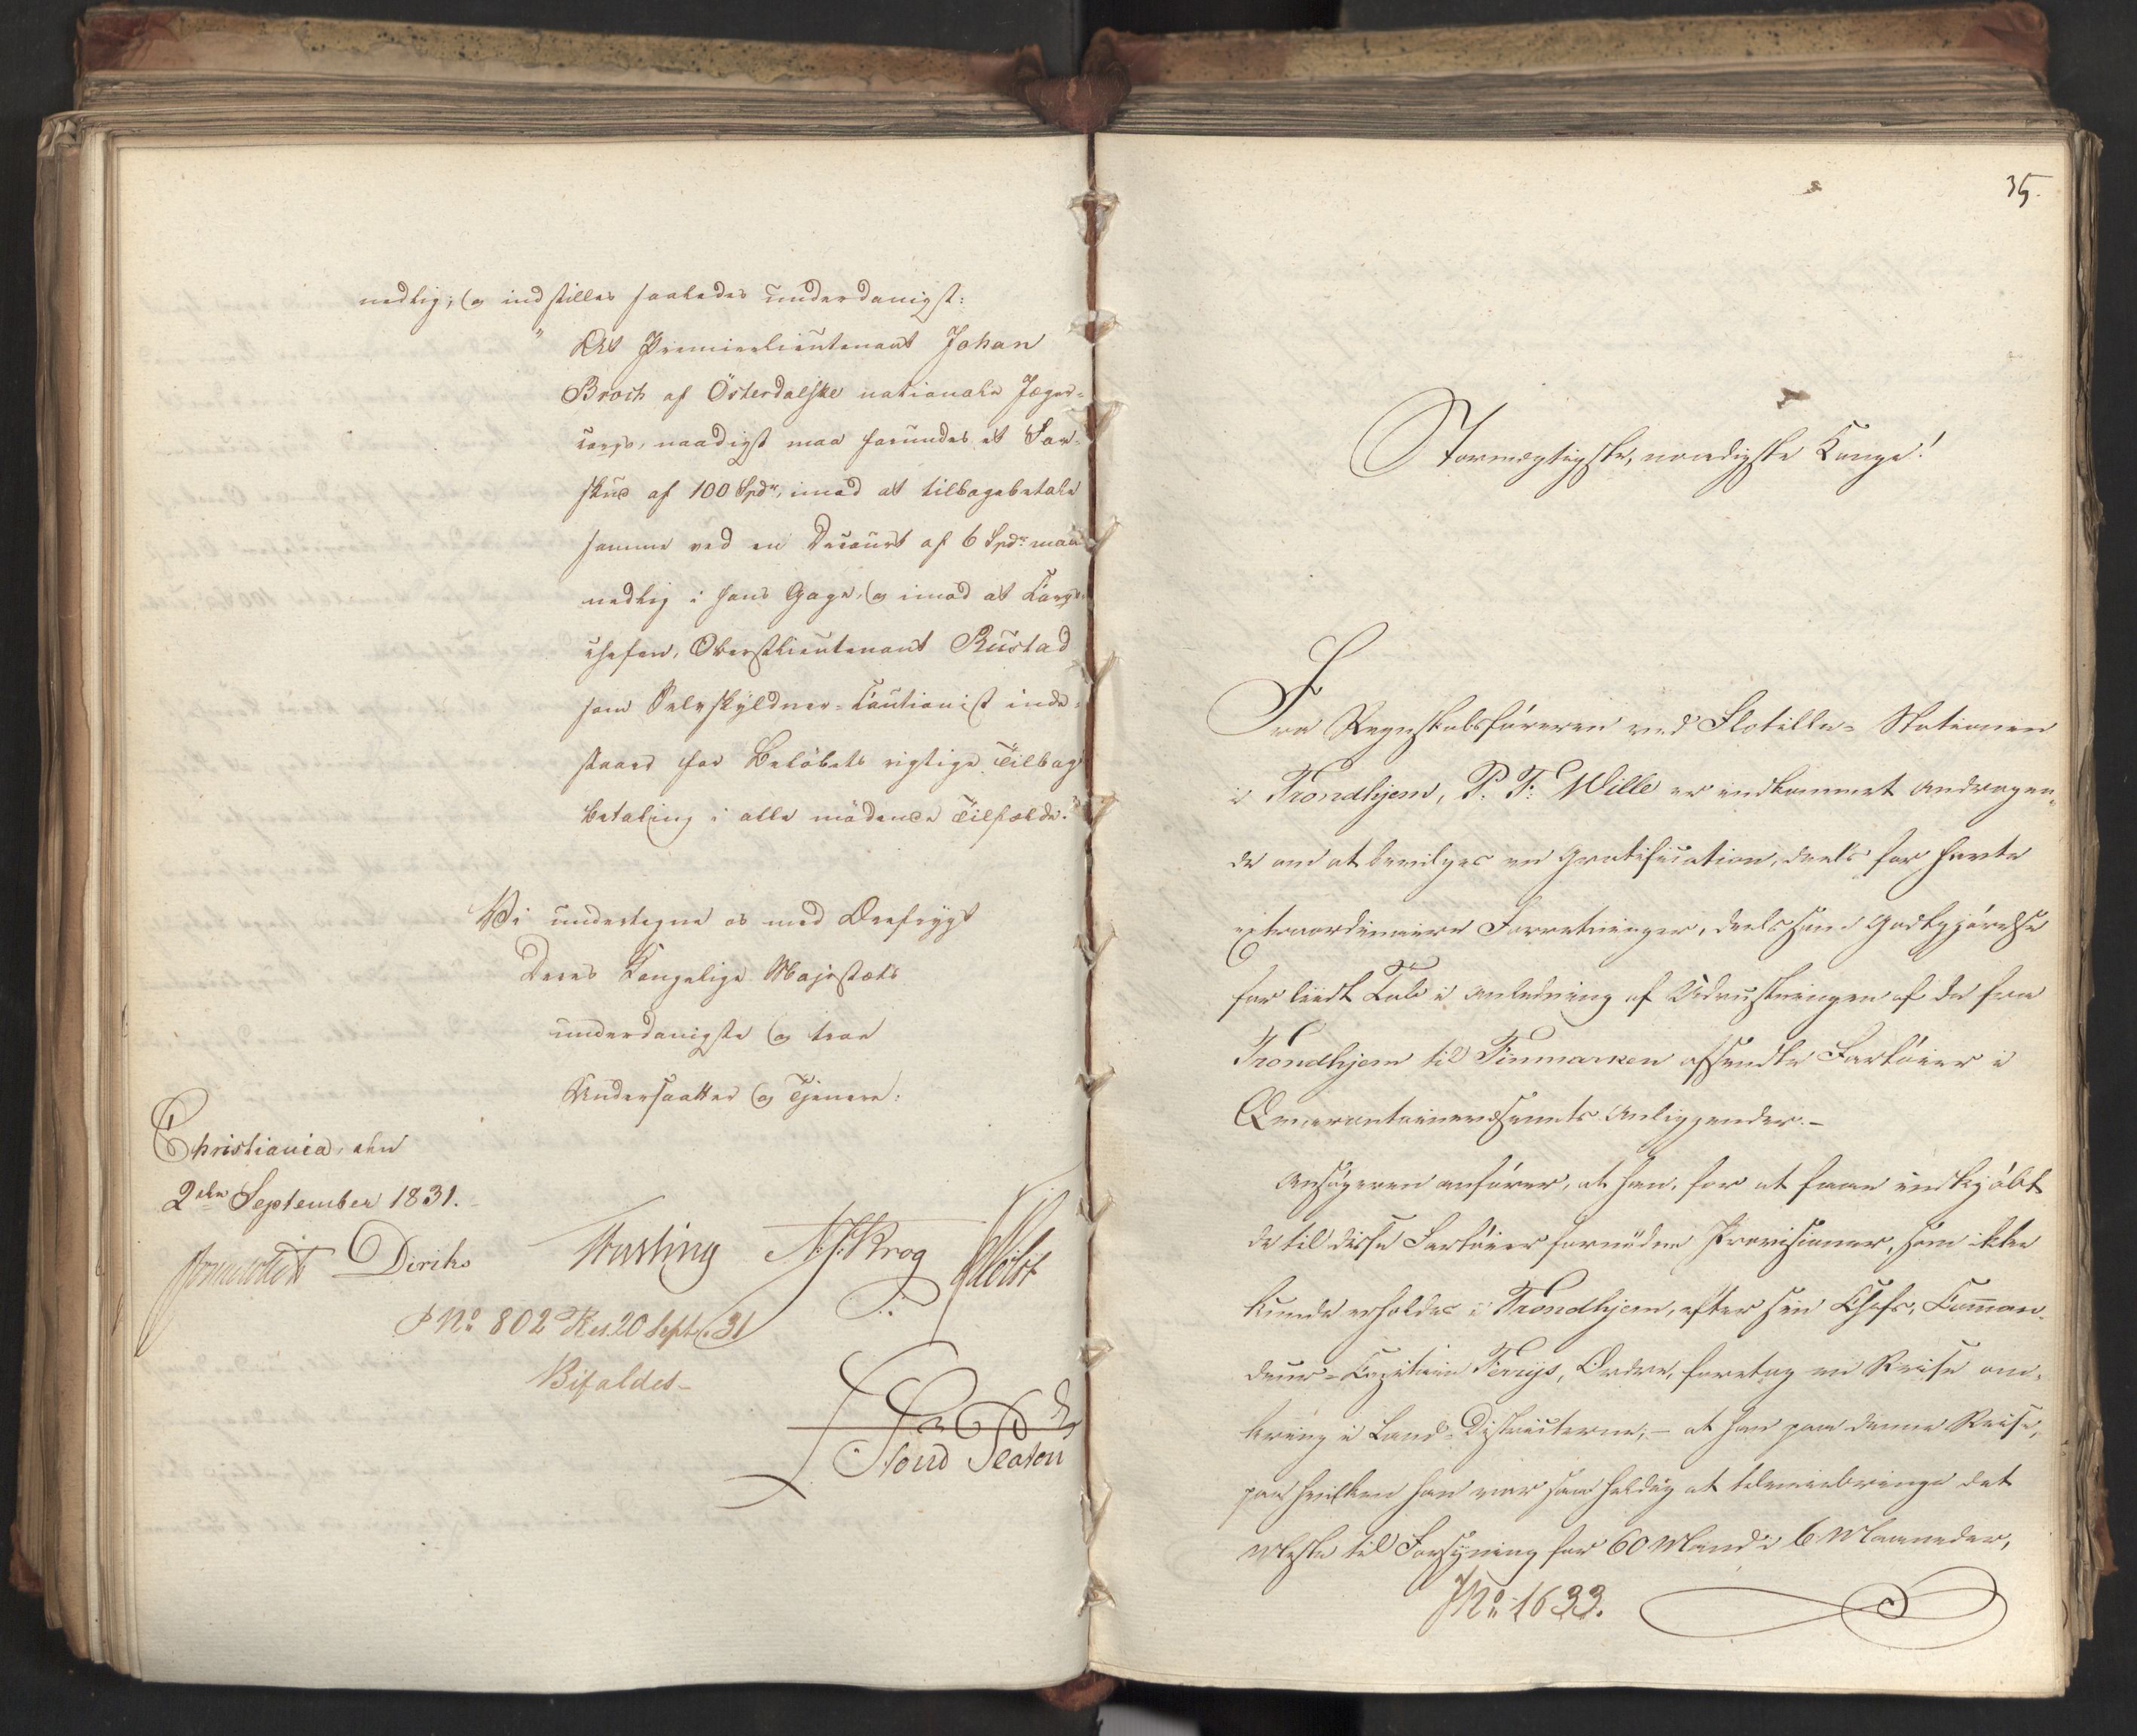 nedlig; og indstilles saaledes underdanigst:
" At Premierlieutenant Johan
Broch af Österdalske nationale Jæger-
corps, naadigst maa forundes et For-
skud af 100 Spdr, imod at tilbagebetale
samme ved en Decourt af 6 Spdr maa-
nedlig i hans Gage, og imod at Corps-
chefen, Oberstlieutenant Rustad
som Selvskyldner-Cautionist inde-
staaer for Belöbets rigtige Tilbage-
betaling i alle mödende Tilfælde."
Vi undertegne os med Ærefrygt
Deres Kongelige Majestæts
underdanigste og troe
Undersaatter og Tjenere:
Christiania, den
2den September 1831.
Diriks Fasting N. J. Krog Holst
P No 802 Res. 20 Septr. 31
Bifaldes-
35.
Stormægtigste, naadigste Konge!
Fra Regnskabsföreren ved Flotille-Stationen
i Trondhjem, P. F. Wille er indkommet Andragen-
de om at bevilges en Gratification, deels for havte
extraordinaire Forretninger, deels som Godtgjörelse
for liidt Tab i Anledning af Udrustningen af de fra
Trondhjem til Finmarken afsendte Fartöier i
Qvarantainevæsenets Anliggender.-
Ansögeren anförer, at han, for at faae indkjöbt
de til disse Fartöier fornödne Provisioner, som ikke
kunde erholdes i Trondhjem, efter sin Chefs, Comman-
deur-Capitain Ordre, foretog en Reise om-
kring i Land-Districterne;- at han paa denne Reise,
paa hvilken han var saa heldig at tilveiebringe det
Meste til Forsyning for 60 Mand i 6 Maaneder,
JNo 1633.